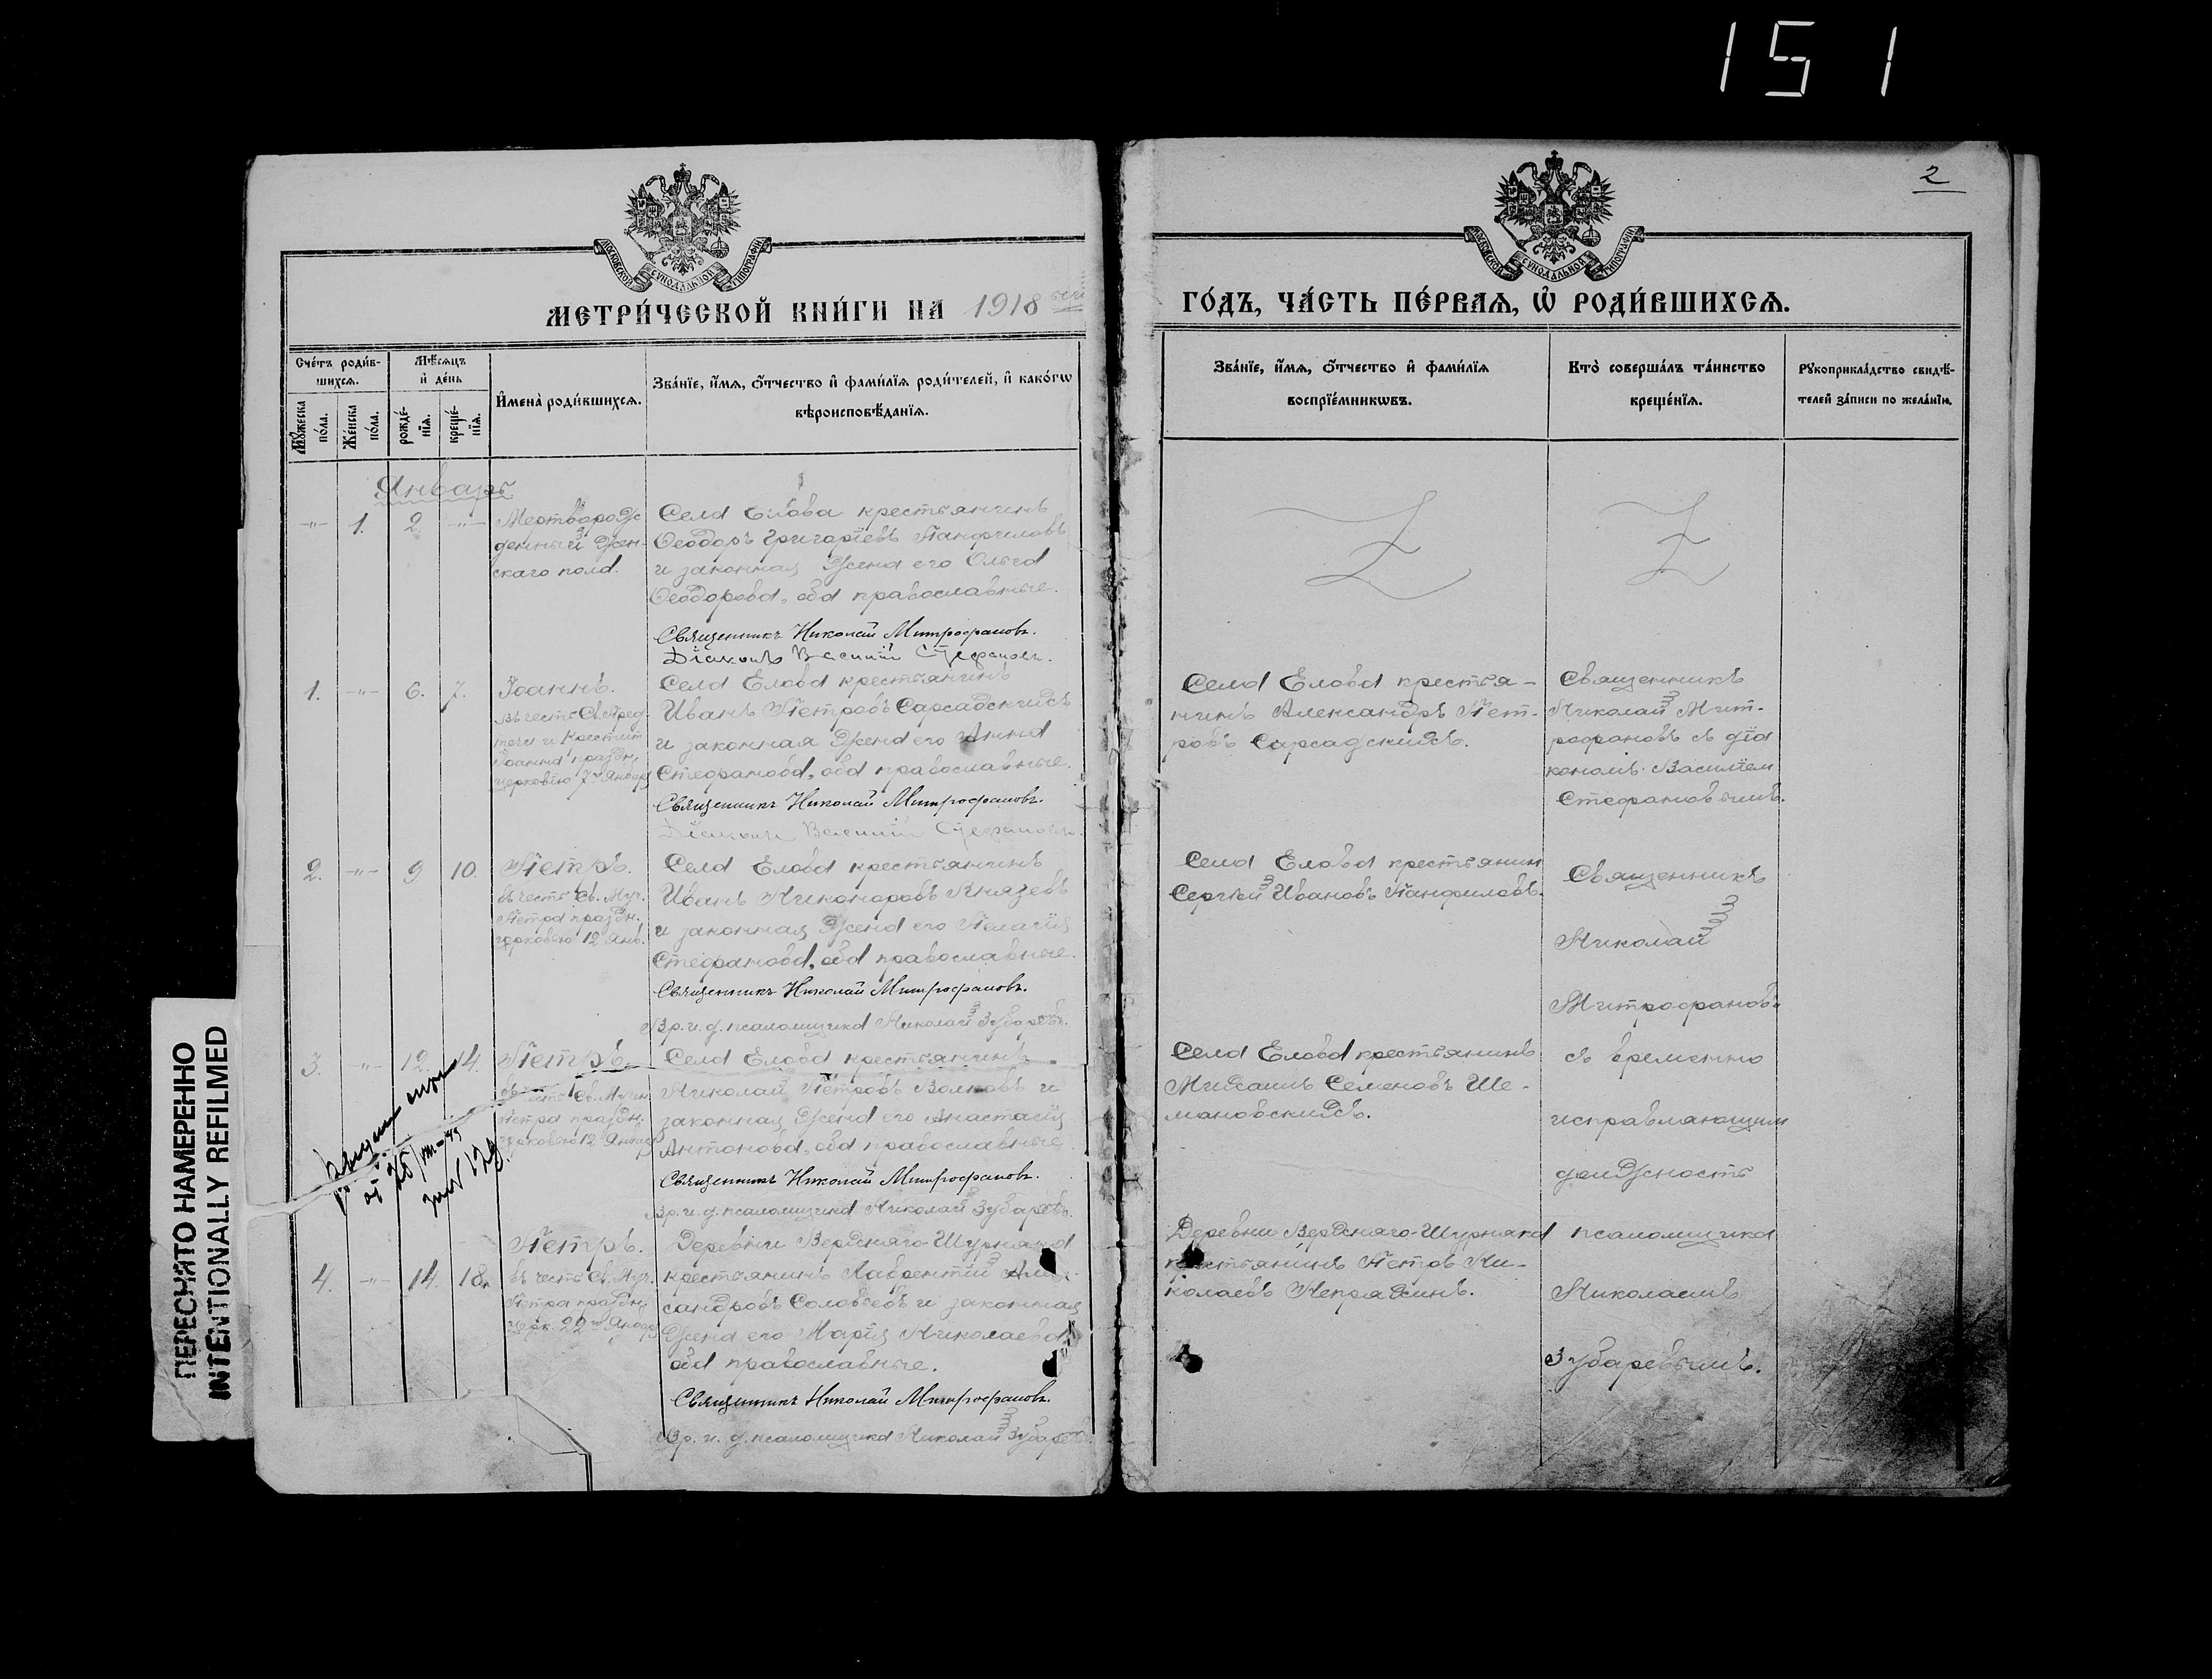 151
2
МОСКОВСКОЙ СѴНОДАЛЬНОЙ ТИПОГРАФІИ
МОСКОВСКОЙ СѴНОДАЛЬНОЙ ТИПОГРАФІИ
МЕТРИ́ЧЕСКОЙ КНИ́ГИ НА 1918
ГО́ДЪ, ЧА́СТЬ ПЕ́РВАЯ, Ѿ РОДИ́ВШИХСЯ.
Сче́тъ роди́в-
шихся.
Мѣ́сяцъ
и҆ де́нь
И҆мена̀ роди́вшихся.
Зва́нїе, и҆́мя, ѻ҆́тчество и҆ фами́лїя роди́телей, и҆ како́гѡ
вѣроисповѣ́данїя.
Мꙋ́жеска
по́ла.
Же́нска
по́ла.
рожде́-
нїя.
креще́-
нїя.
Зва́нїе, и҆́мя, ѻ҆́тчество и҆ фами́лїя
воспрїе́мникѡвъ.
Кто̀ соверша́лъ та́инство
креще́нїя.
Рꙋкоприкла́дство свидѣ́-
телей за́писи по жела́нїю.
Январь
-"- 1. 2. -"-
Мертворож
денный жен-
скаго пола.
Села Елова крестьянинъ
Ѳеодоръ Григорїевъ Панфиловъ
и законная жена его Ольга
Ѳеодорова, оба православные.
Священникъ Николай Митрофановъ.
Дїаконъ Василій Стефановъ.
1. -"- 6. 7.
Іоаннъ.
въ честь Св. Пред-
течи и Крестит.
Іоанна праздн.
церковію 7го Января
Села Елова крестьянинъ
Иванъ Петровъ Сарсадскихъ
и законная жена его Анна
Стефанова, оба православные.
Священникъ Николай Митрофановъ.
Дїаконъ Василій Стефановъ.
Села Елова крестья-
нинъ Александръ Пет-
ровъ Сарсадскихъ.
Священникъ
Николай Мит-
рофановъ съ дїа
кономъ Василїем
Стефановымъ.
2. -"- 9 10.
Петръ.
въ честь Св. Муч.
Петра праздн.
церковью 12 Янв.
Села Елова крестьянинъ
Иванъ Никоноровъ Князевъ
и законная жена его Пелагія
Стефанова, оба православные.
Священникъ Николай Митрофановъ.
Вр. и. д. псаломщика Николай Зубаревъ.
Села Елова крестьянин
Сергѣй Ивановъ Панфиловъ.
Священникъ
Николай
Митрофановъ
съ временно
исправляющим
должность
псаломщика
Николаемъ
Зубаревымъ.
3. -"- 12. 14.
Петръ.
въ честь Св. Мучен.
Петра праздн.
церковью 12 Января
Села Елова крестьянинъ
Николай Петровъ Волковъ и
законная жена его Анастасія
Антонова, оба православные
Священникъ Николай Митрофановъ.
Вр. и. д. псаломщика Николай Зубаревъ.
Села Елова крестьянинъ
Михаилъ Семеновъ Ше-
мановскихъ.
4. -"- 14. 18.
Петръ.
въ честь Св. Муч.
Петра праздн.
церк. 22го Января
Деревни Верхняго-Шурняка
крестьянинъ Лаврентій Алек-
сандровъ Соловьевъ и законная
жена его Марія Николаева,
оба православные.
Священникъ Николай Митрофановъ.
Вр. и. д. псаломщика Николай Зубаревъ.
Деревни Верхняго-Шурняка
крестьянинъ Петръ Ни-
колаевъ Непряхинъ.
ПЕРЕСНЯТО НАМЕРЕННО
INTENTIONALLY REFILMED